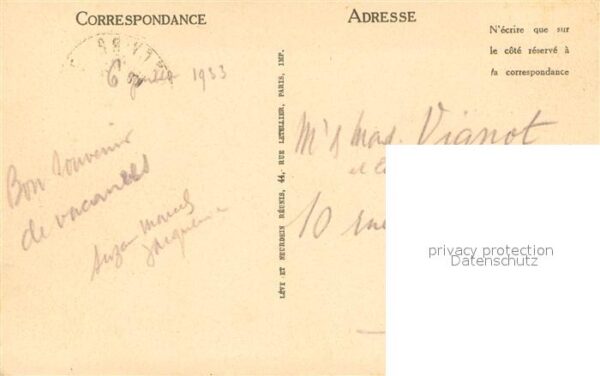 CORRESPONDANCE
ADRESSE
N'écrire que sur
le côté réservé à
la correspondance
6 1933
Bon souvenir
de vacances
Suzon Marcel
Jacqueline
LÉVY ET NEURDEIN RÉUNIS, 44, RUE LETELLIER, PARIS, IMP.
Mr & Mad. Viannot
et
10 rue
privacy protection
Datenschutz